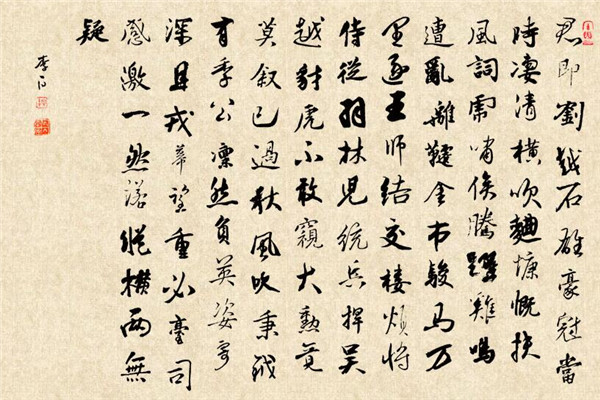 君即劉越石雄豪冠當
時凄清橫吹麯慷慨扶
風詞虎嘯俟騰躍雞鳴
遭亂離韆金市駿馬万
里逐王師結交樓煩將
侍從羽林兒統兵捍吳
越豺虎不敢窺大勳竟
莫叙已過秋風吹秉鉞
有季公凜然負英姿寄
深且戎幕望重必臺司
感激一然諾縱橫兩無
疑
李白